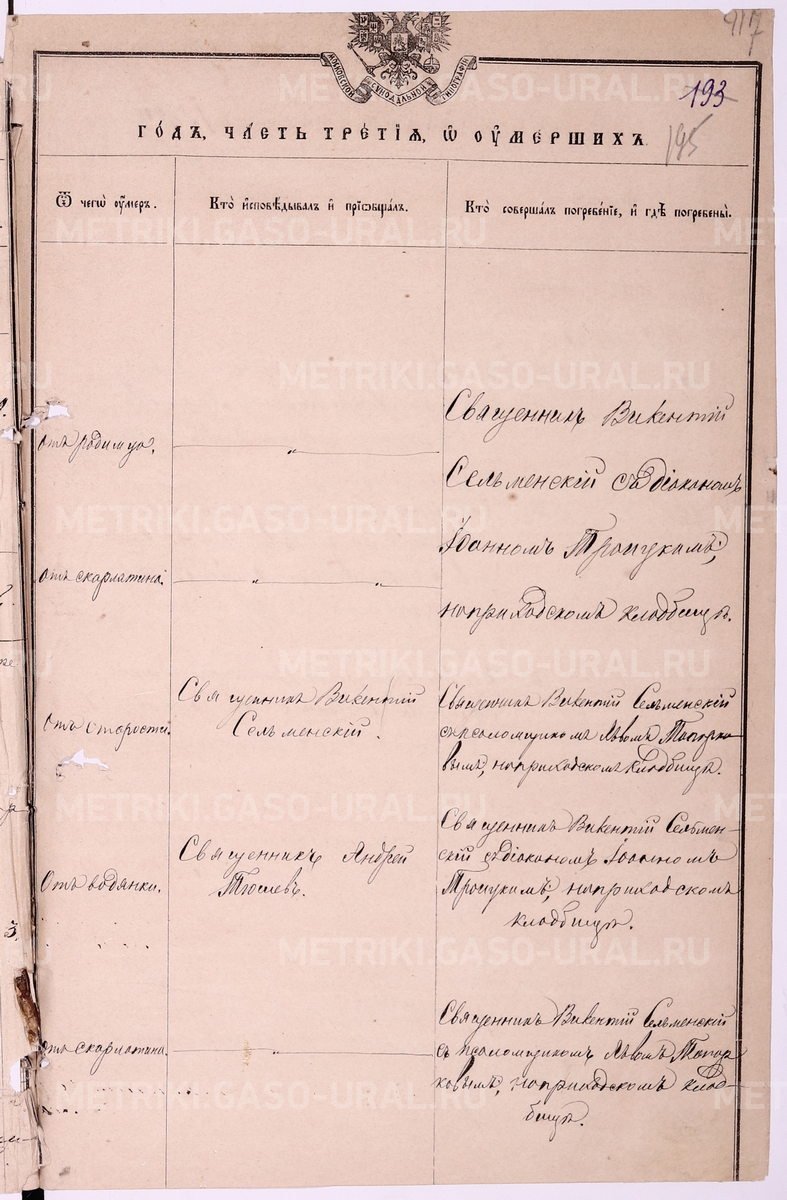 917
193
195
МОСКОВСКОЙ СѴНОДАЛЬНОЙ ТИПОГРАФІИ
ГО́ДЪ, ЧАСТЬ ТРЕТІѦ, Ѡ ОУ҆МЕРШИХЪ.
Ѿ чегѡ̀ оу҆́меръ.
Кто̀ и҆сповѣ́дывалъ и҆ прїѡбща́лъ.
Кто̀ соверша́лъ погребе́нїе, и҆ гдѣ̀ погребены̀.
отъ родимца.
Священникъ Викентій
Сельменскій съ діакономъ
Іоанномъ Троицкимъ,
на приходскомъ кладбищѣ.
отъ скарлатина.
отъ старости.
Священникъ Викентій
Сельменскій.
Священникъ Викентій Сельменскій
съ псаломщикомъ Львомъ Топорко-
вымъ, на приходскомъ кладбищѣ.
Отъ водянки.
Священникъ Андрей
Тюшевъ.
Священникъ Викентій Сельмен-
скій съ діакономъ Іоанномъ
Троицкимъ, на приходскомъ
кладбищѣ.
отъ скарлатина.
Священникъ Викентій Сельменскій
съ псаломщикомъ Львомъ Топор-
ковымъ, на приходскомъ клад-
бищѣ.
METRIKI.GASO-URAL.RU